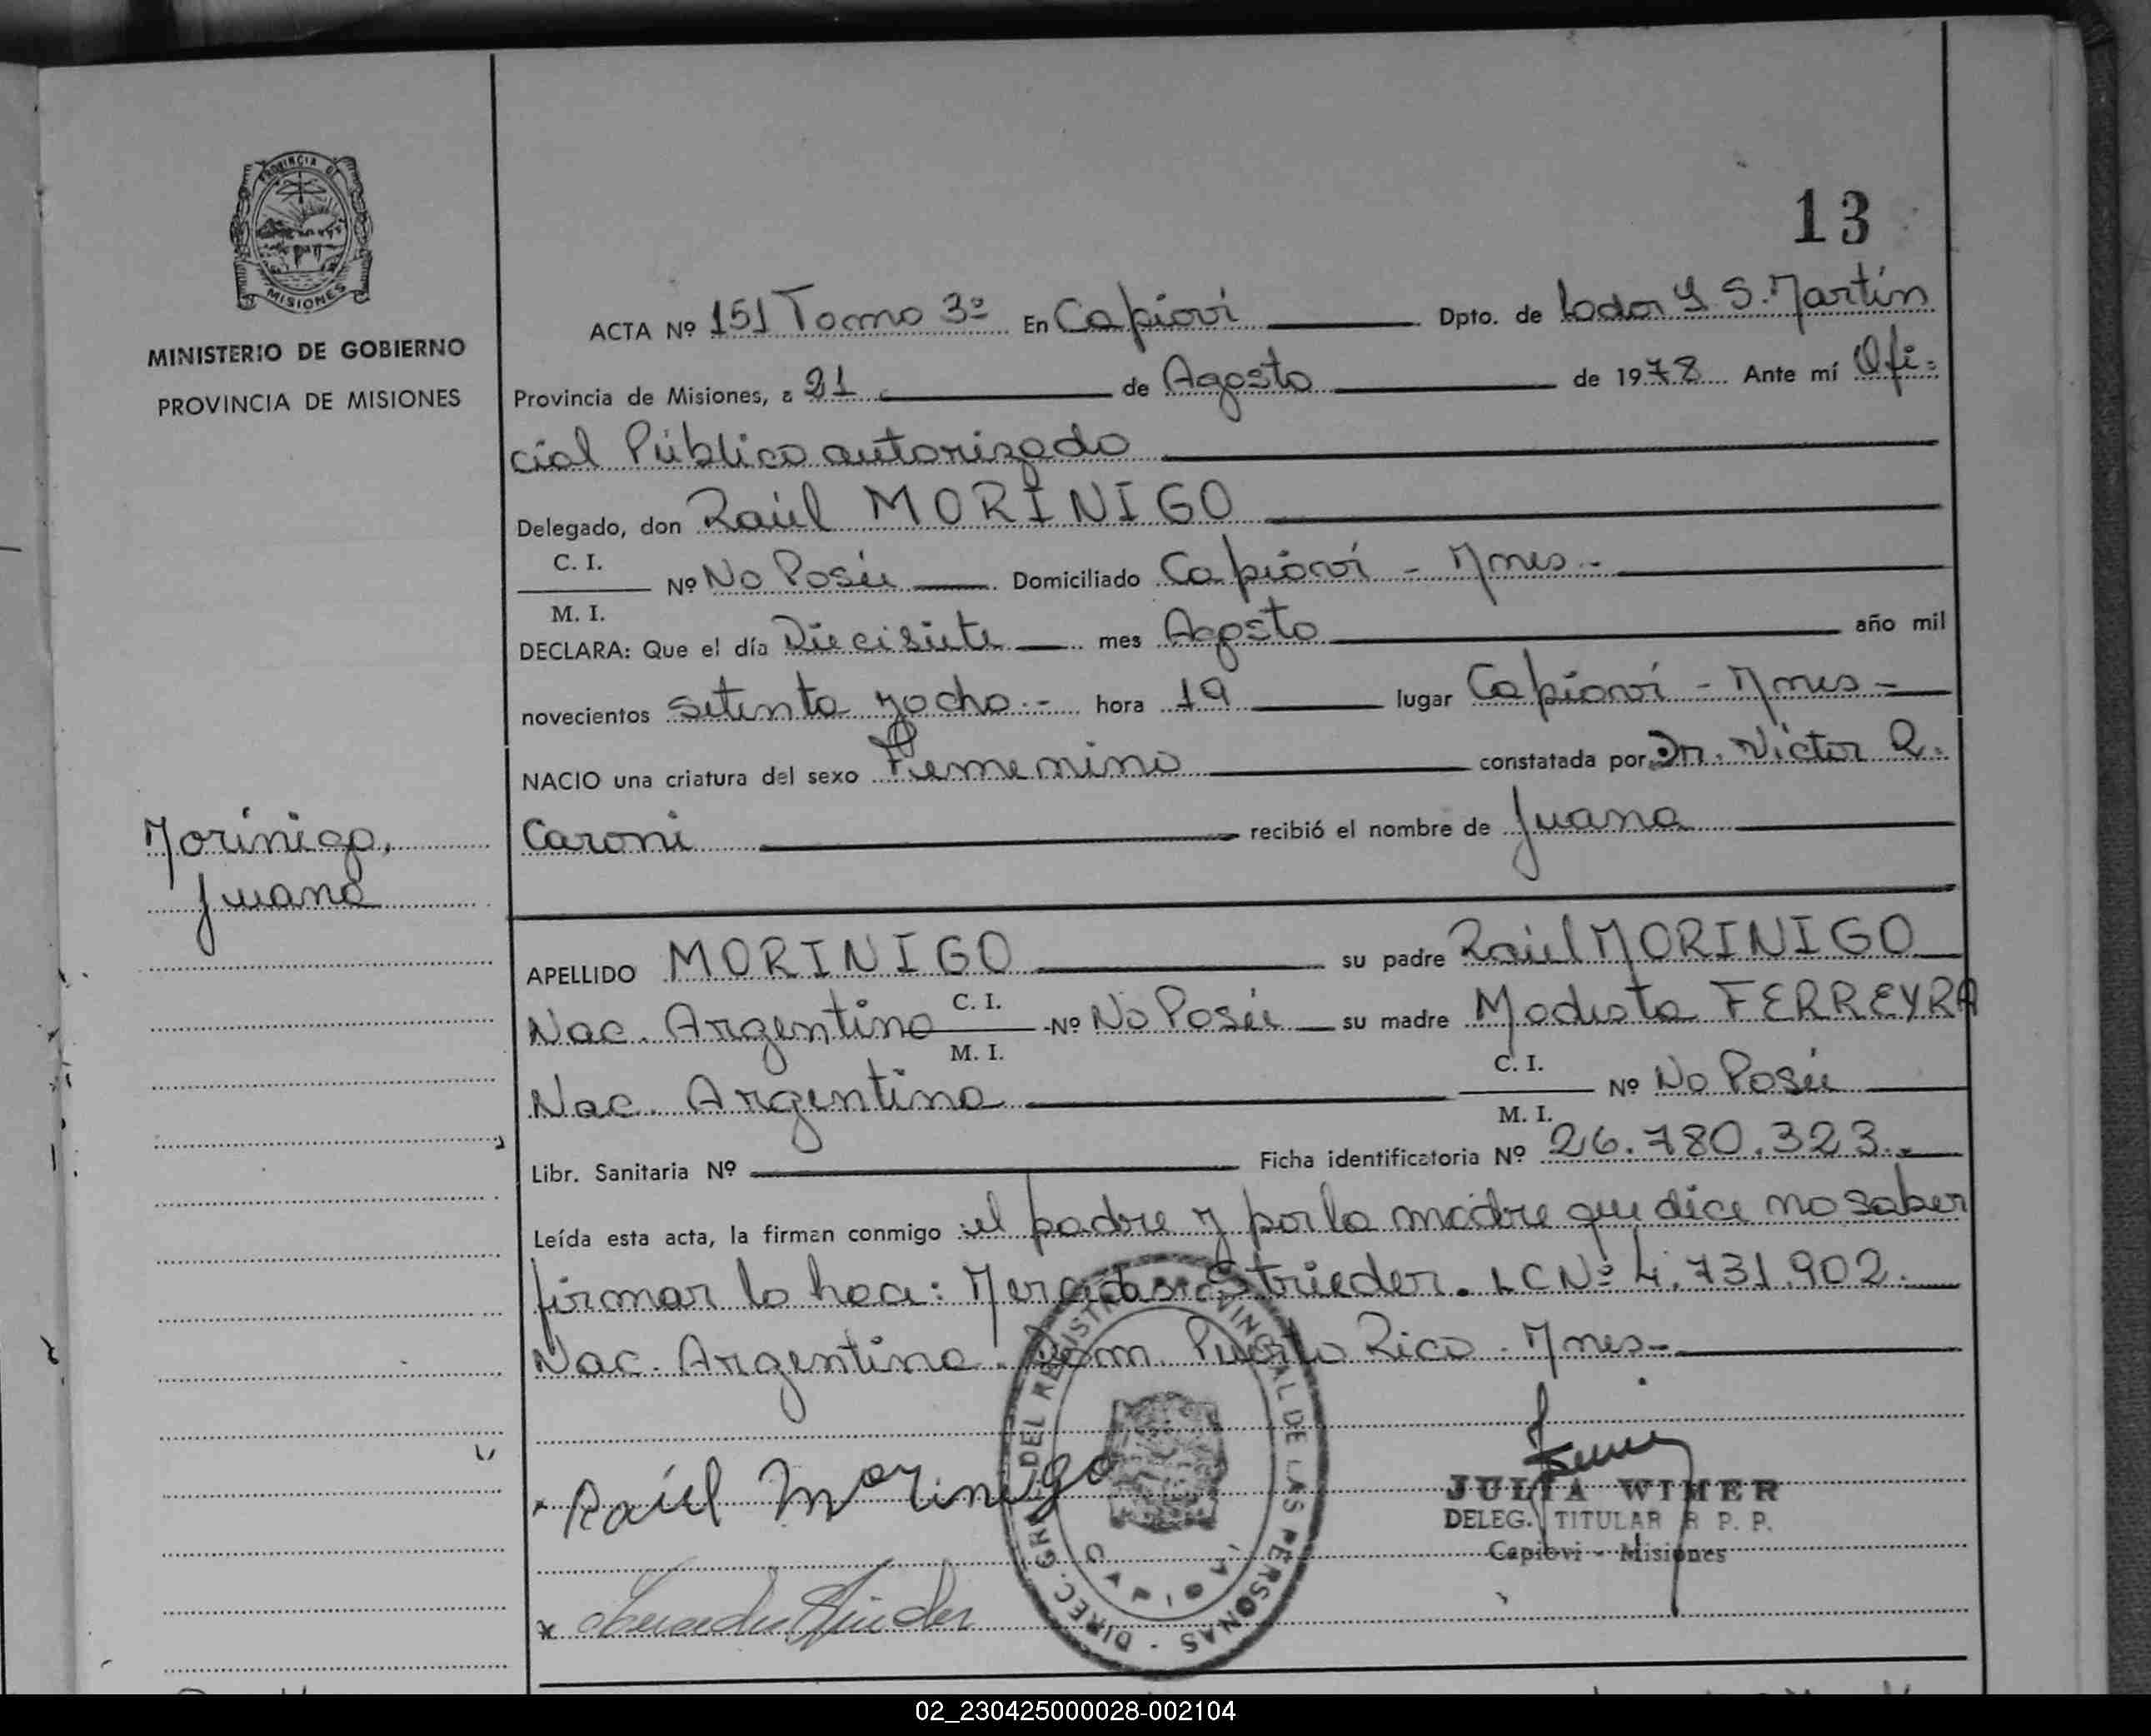 13
PROVINCIA DE
MISIONES
MINISTERIO DE GOBIERNO
PROVINCIA DE MISIONES
ACTA Nº 151 Tomo 3º En Capioví Dpto. de Ldor G S. Martín
Provincia de Misiones, a 21 de Agosto de 1978 Ante mí Ofi-
cial Público autorizado
Delegado, don Raúl MORINIGO
C. I.
Nº No Posée Domiciliado Capioví - Mnes -
M. I.
DECLARA: Que el día Diecisiete mes Agosto año mil
novecientos setenta y ocho.- hora 19 lugar Capioví - Mnes -
NACIO una criatura del sexo Femenino constatada por Dr. Victor R.
Caroni recibió el nombre de Juana
Morinigo,
Juana
APELLIDO MORINIGO su padre Raúl MORINIGO
Nac. Argentina C. I. Nº No Posée su madre Modesta FERREYRA
M. I.
Nac. Argentina C. I. Nº No Posée
M. I.
Libr. Sanitaria Nº Ficha identificatoria Nº 26.780.323.-
Leída esta acta, la firman conmigo :el padre y por la madre que dice no saber
firmar lo hace: Mercedes Strieder. LC Nº 4.731.902.
Nac. Argentina. Dom. Puerto Rico - Mnes-
Raúl Morinigo
DIREC. GRAL. DEL REGISTRO PROVINCIAL DE LAS PERSONAS -
CAPIOVI
JULIA WIMER
DELEG. TITULAR R P. P.
Capiovi - Misiones
02_230425000028-002104